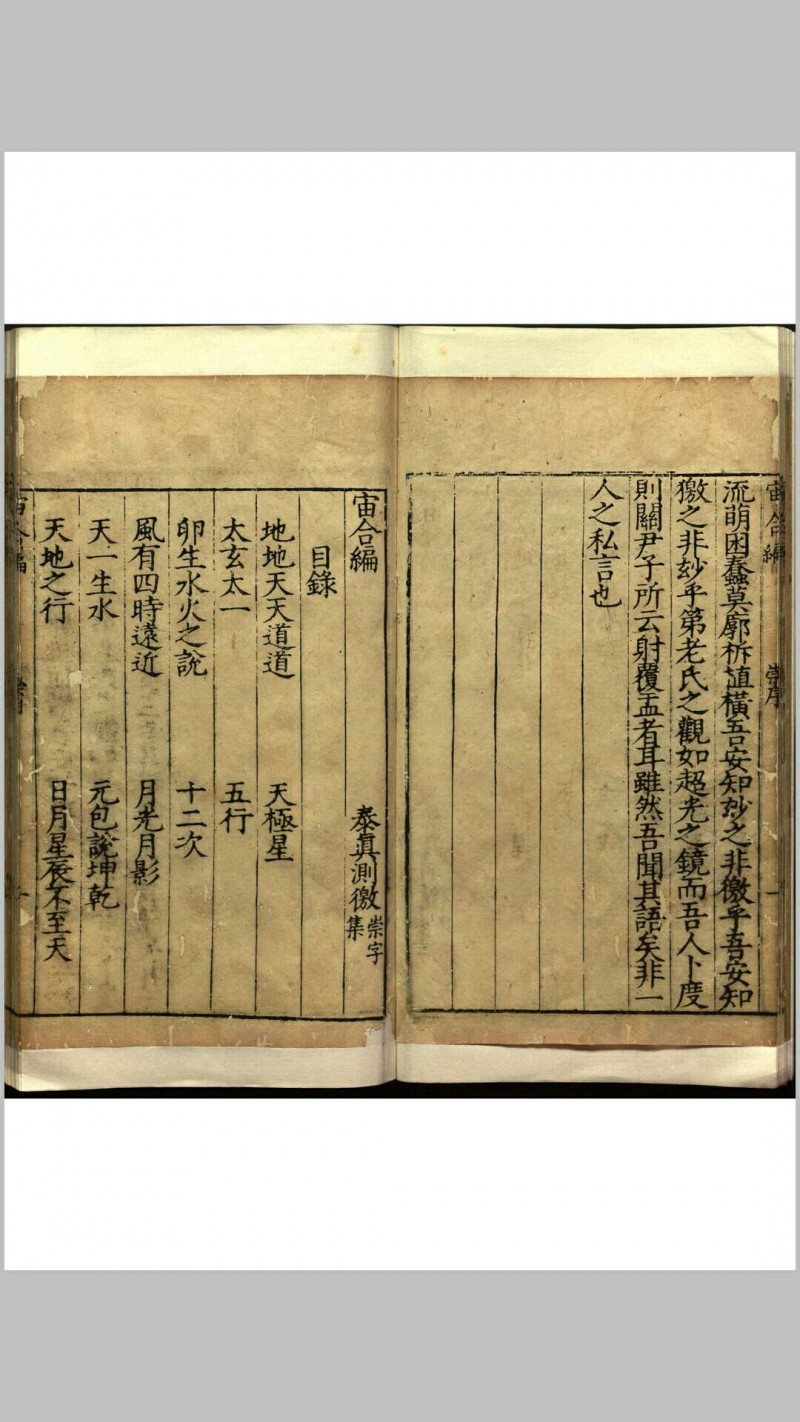 宙合編
崇序
一
流萌困蠢莫廓柝埴橫吾安知玅之非徼乎吾安知
徼之非玅乎第老氏之觀如超光之鏡而吾人卜度
則關尹子所云射覆盂者耳雖然吾聞其語矣非一
人之私言也
宙合編
泰眞測徼 崇字集
目錄
地地天天道道 天極星
太玄太一 五行
卵生水火之說 十二次
風有四時遠近 月光月影
天一生水 元包說坤乾
天地之行 日月星辰不至天
宙合編
一